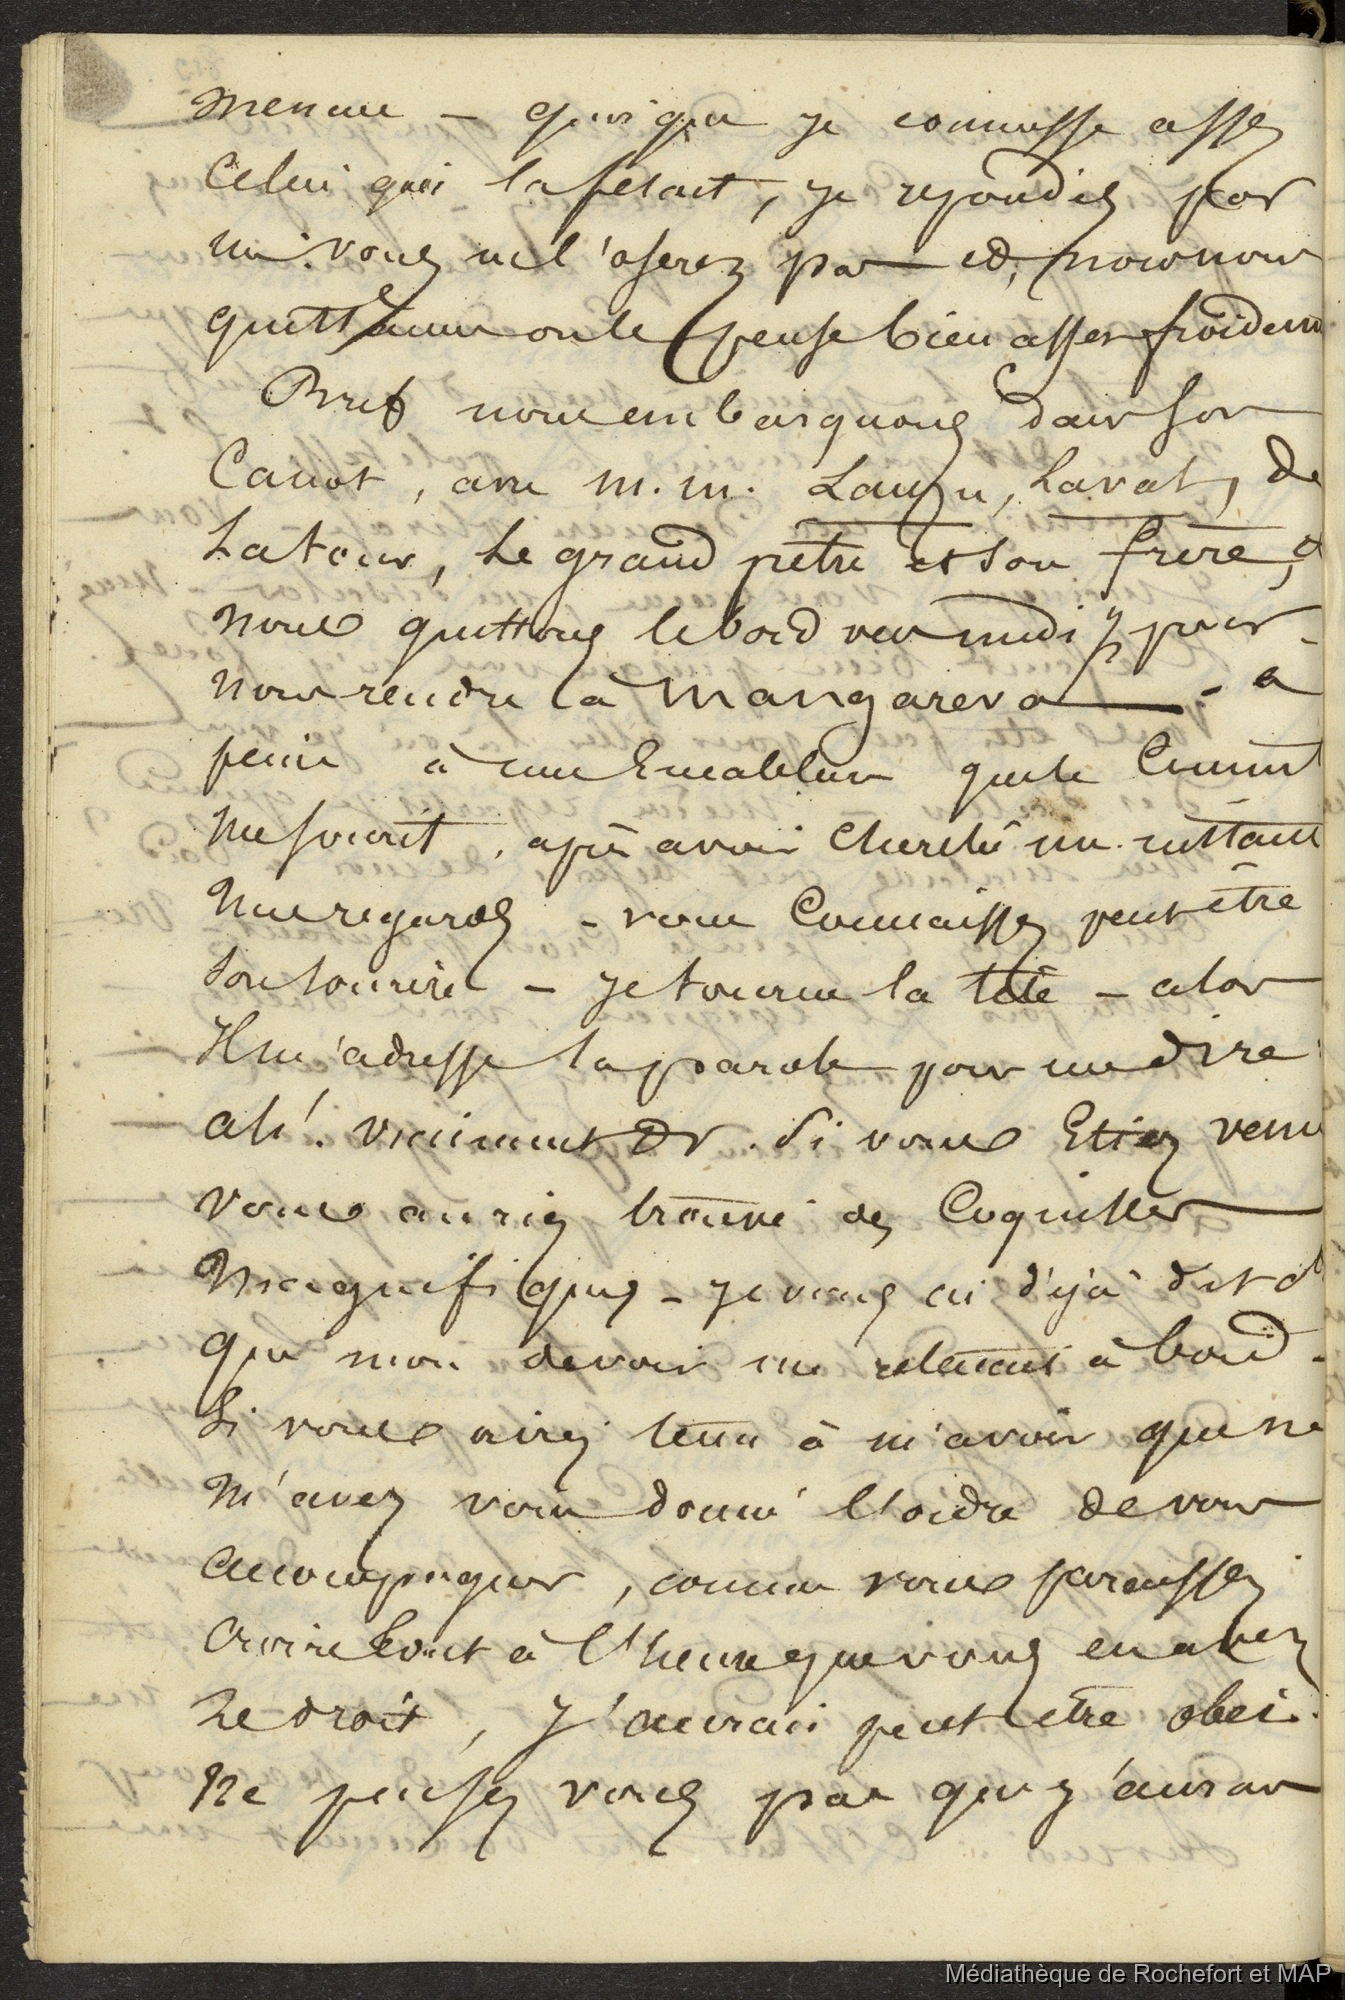 menace – quoique je connusse assez
Celui qui la fesait, je repondis par
un: vous ne l'oserez pas et, nous nous
quittames on le pense bien assez froidem
Bref nous embarquons dans son
Canot, avec m.m. Lauzu, Laval, de
Latour, Le grand petre et son frère, a
nous quittons le bord vers midi ½ pour
nous rendre à Mangareva – . a
peine à une Encablure que le Commt
me sourit, après avoir cherché un instant
mes regards – vous Connaissez peut être
son sourire – je tourne la tête – alors
Il m'adresse la parole pour me dire
ah! vraiment Dr. Si vous Etiez venu
vous auriez trouvé des Coquilles
Magnifiques – je vous ai déjà dit
que mon devoir me retenait à bord –
Si vous aviez tenu à m'avoir que ne
M'avez vous donné l'ordre de vous
accompagner, comme vous paraissez
croire tout à l'heure que vous en avez
Le droit, J'aurais peut être obei.
Ne pensez vous pas que j'aurais
Médiathèque de Rochefort et MAP